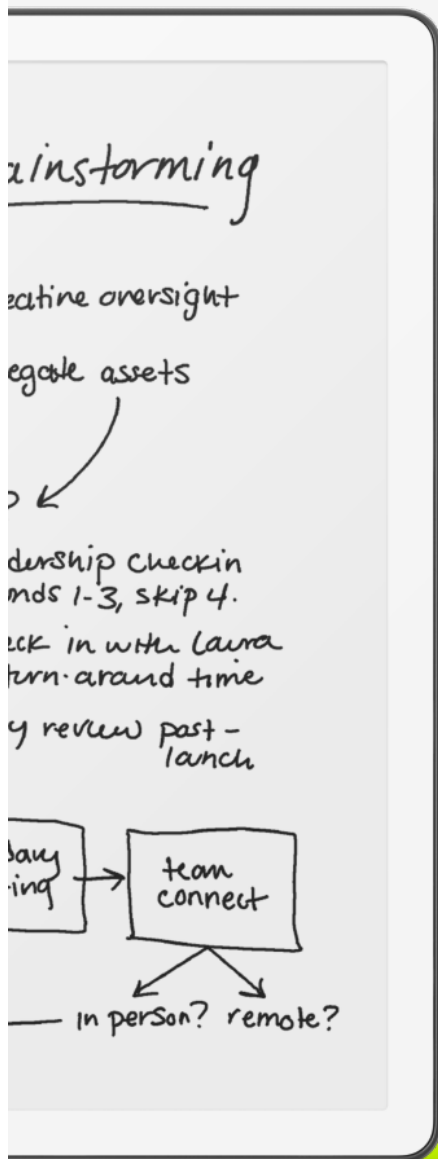 ainstorming
eative oversight
egate assets
dership checkin
nds 1-3, skip 4.
eck in with Laura
turn-around time
y review post-
launch
day
ing
team
connect
in person? remote?